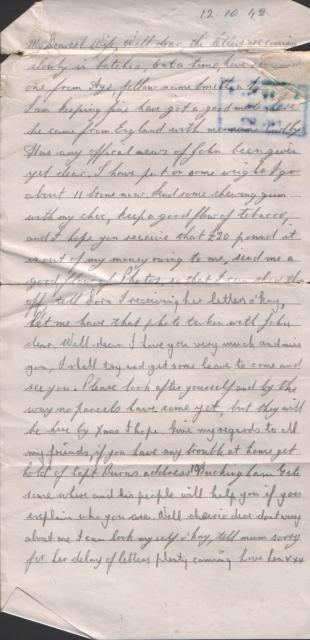 12.10.42
My Dearest Wife Well dear the letters are coming
slowly in batches, but a time have
one from
I am keeping fine have got a good mate here
he came from England with me name
Has any offical news of John been given
yet dear. I have put on some weight I go
about 11 stone now. Send some chewing gum
with my choc, keep a good flow of tobacco,
and I hope you receive that £20 pound it
is out of my money owing to me, send me a
good few Photos so that I can show them
off, tell Dora I receiving her letters o'kay,
let me have that photo taken with John
dear. Well dear I love you very much and miss
you, I shall try and get some leave to come and
see you. Please look after yourself and by the
way no parcels have come yet, but they will
be here by Xmas I hope. Give my regards to all
my friends, if you have any trouble at home get
hold of Capt Burns address Buckingham Gate
some where and his people will help you if you
explain who you are. Well cheerio dear dont worry
about me I can look myself o'kay, tell mum sorry
for her delay of letters plenty coming love Len xxx